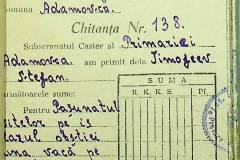 omuna Adamovca.
Chitanța Nr. 138.
Subsemnatul Casier al Primariei
Adamovca am primit dela Timofeev
Stefan.
următoarele sume:
SUMA
R. K. K. S. R. K. Pl
Pentru Pasunatul
vitelor pe is
lazul obștiei
una vacă pe